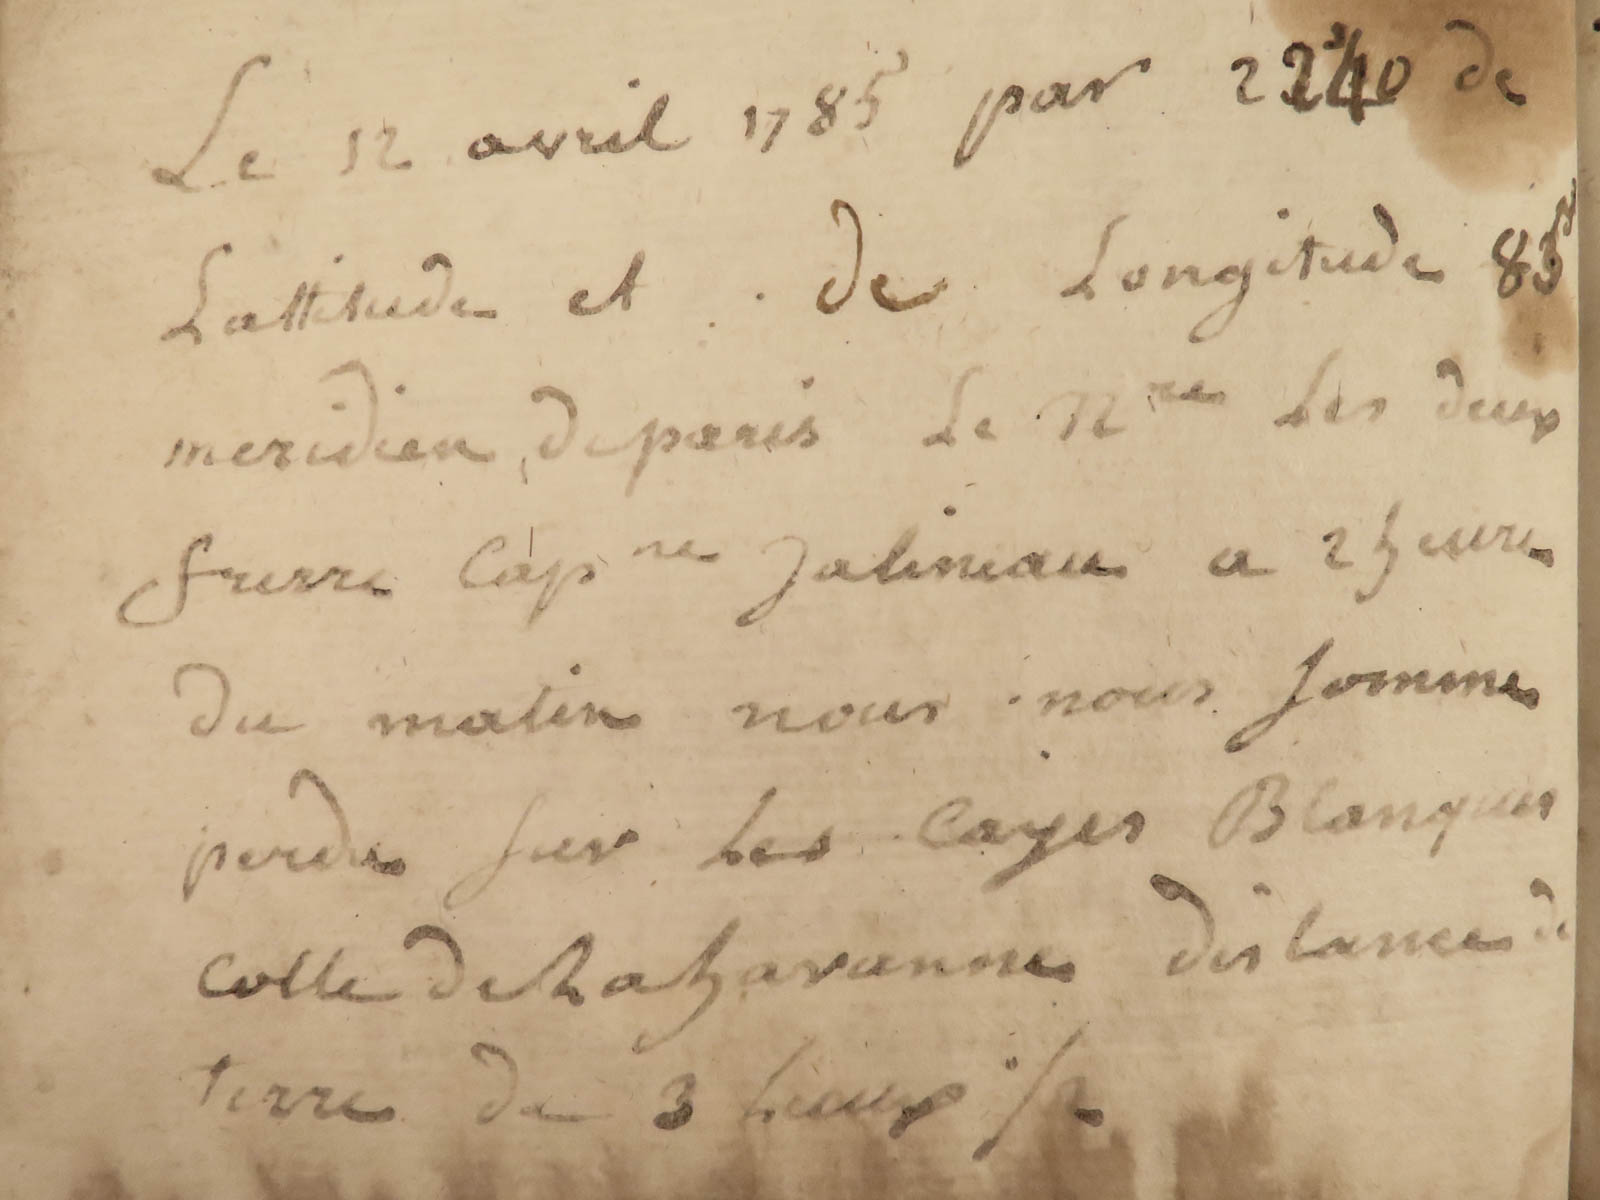 Le 12 avril 1785 par 22 40 de
Lattitude et de Longitude 85
meridien de paris Le N.re Les deux
frerre Cap ne Jalineau a 2 heure
du matin nous nous somme
perdu sur Les Cayes Blanques
Colle de La havanne distance de
terre de 3 Lieux 1/2